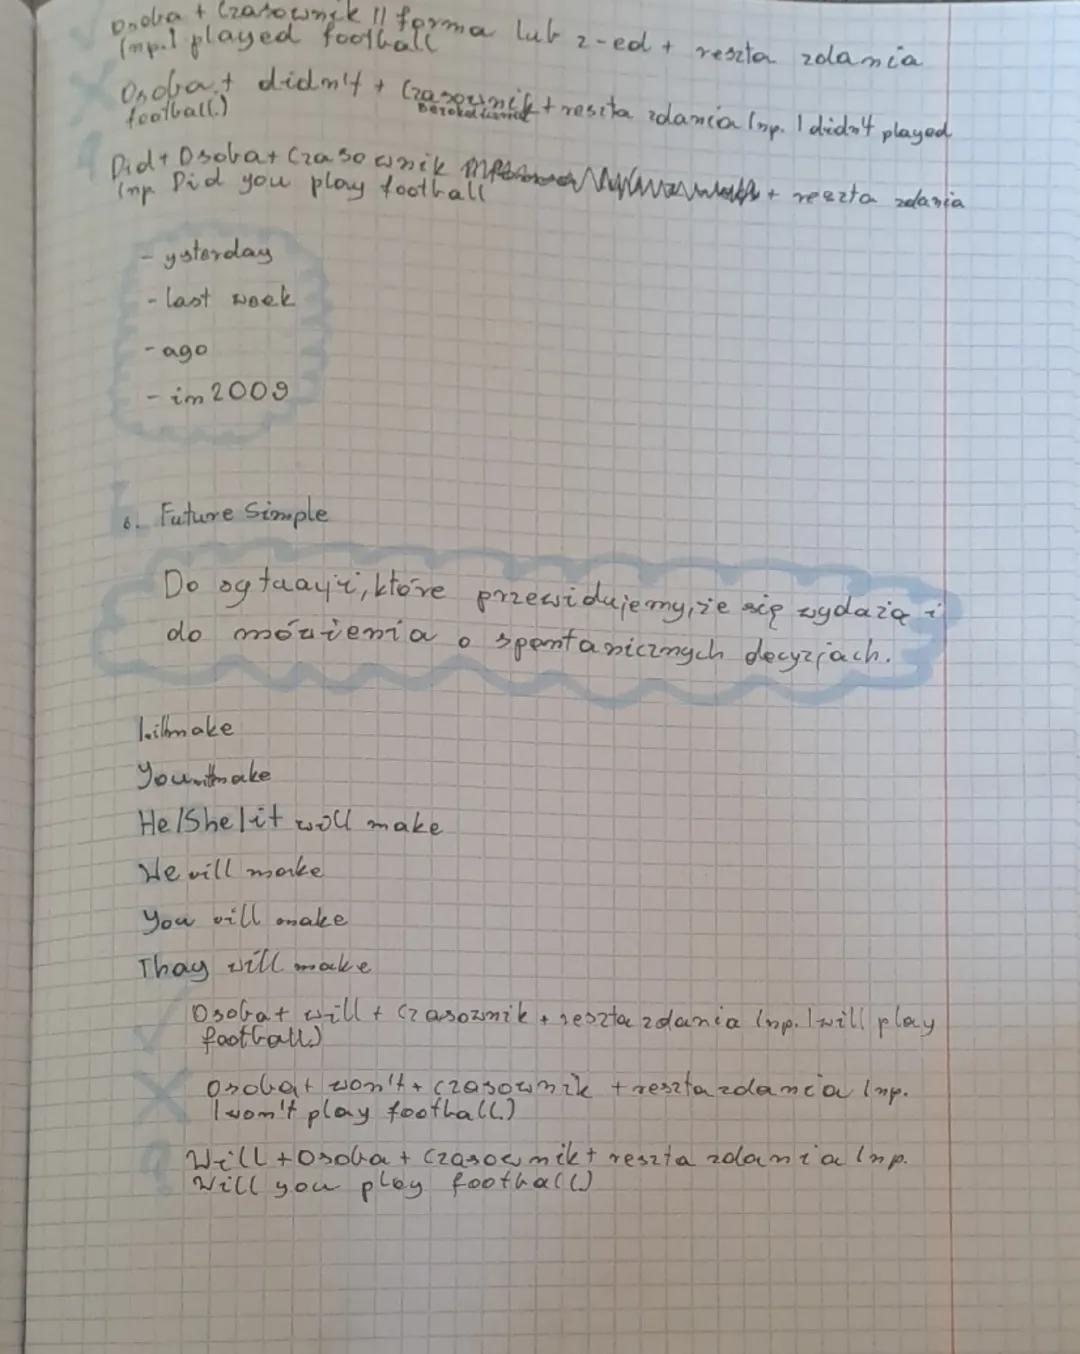 Osoba + Czasownik II forma lub z -ed + reszta zdania
(np. I played football
Osoba + didn't + Czasownik + reszta zdania (np. I didn't played
football.)
Did + Osoba + Czasownik + reszta zdania
(np Did you play football
- ysterday
- last week
- ago
- in 2009
6. Future Simple
Do sytuacji, które przewidujemy, że się wydażą i
do mówienia o spontanicznych decyzjach.
I will make
You will make
He/She/it will make
We will make
You will make
Thay will make
Osoba + will + czasownik + reszta zdania (np. I will play
football.)
Osoba + won't + czasownik + reszta zdania (np.
I won't play football.)
Will + Osoba + czasownik + reszta zdania (np.
Will you play football)